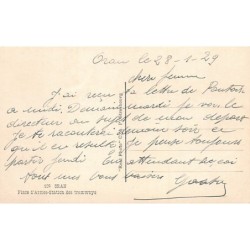 Oran le 28-1-29
chère femme
J'ai reçu la lettre de Pantoit
à midi. Demain mardi je vois le
directeur au sujet de mon départ
je te raconterai demain soir ce
qu'il en résulte je pense toujours
partir jeudi En attendant reçoi
tout mes bons baisers
Gaston
ORAN
Place d'Armes-Station des tramways